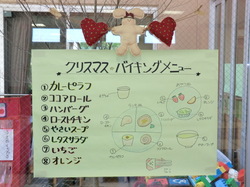 クリスマス・バイキングメニュー
①カレーピラフ
②ココアロール
③ハンバーグ
④ローストチキン
⑤やさいスープ
⑥レタスサラダ
⑦いちご
⑧オレンジ